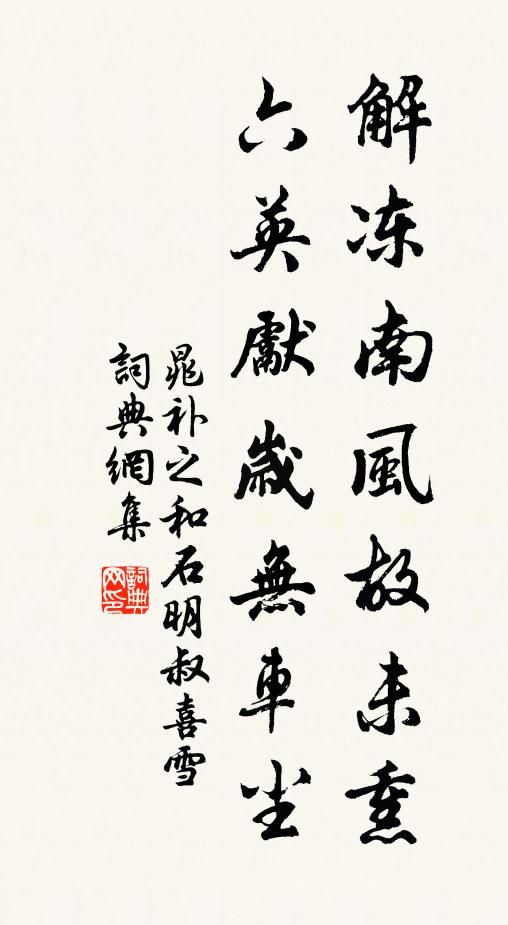 解冻南風故未熏
六英獻歲無車尘
晁补之和石明叔喜雪
詞典網集
詞典网印